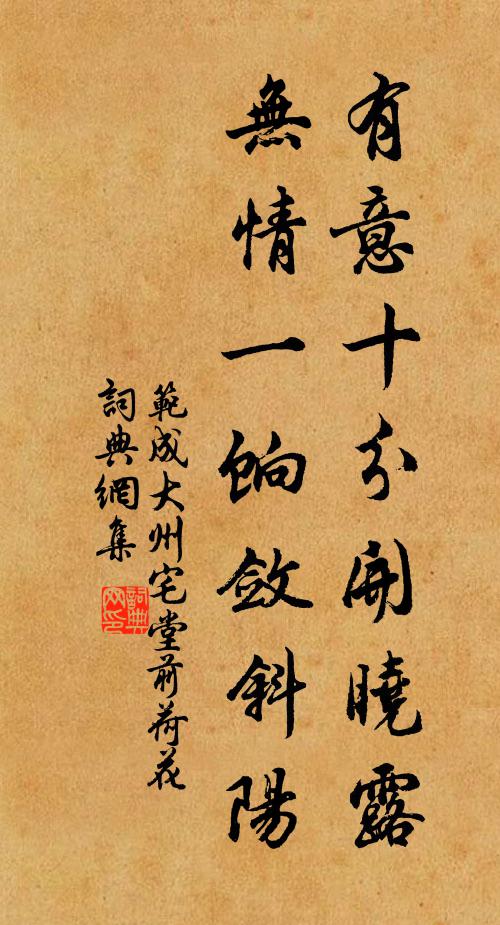 有意十分開曉露
無情一餉斂斜陽
範成大州宅堂前荷花
詞典網集
詞典
网印